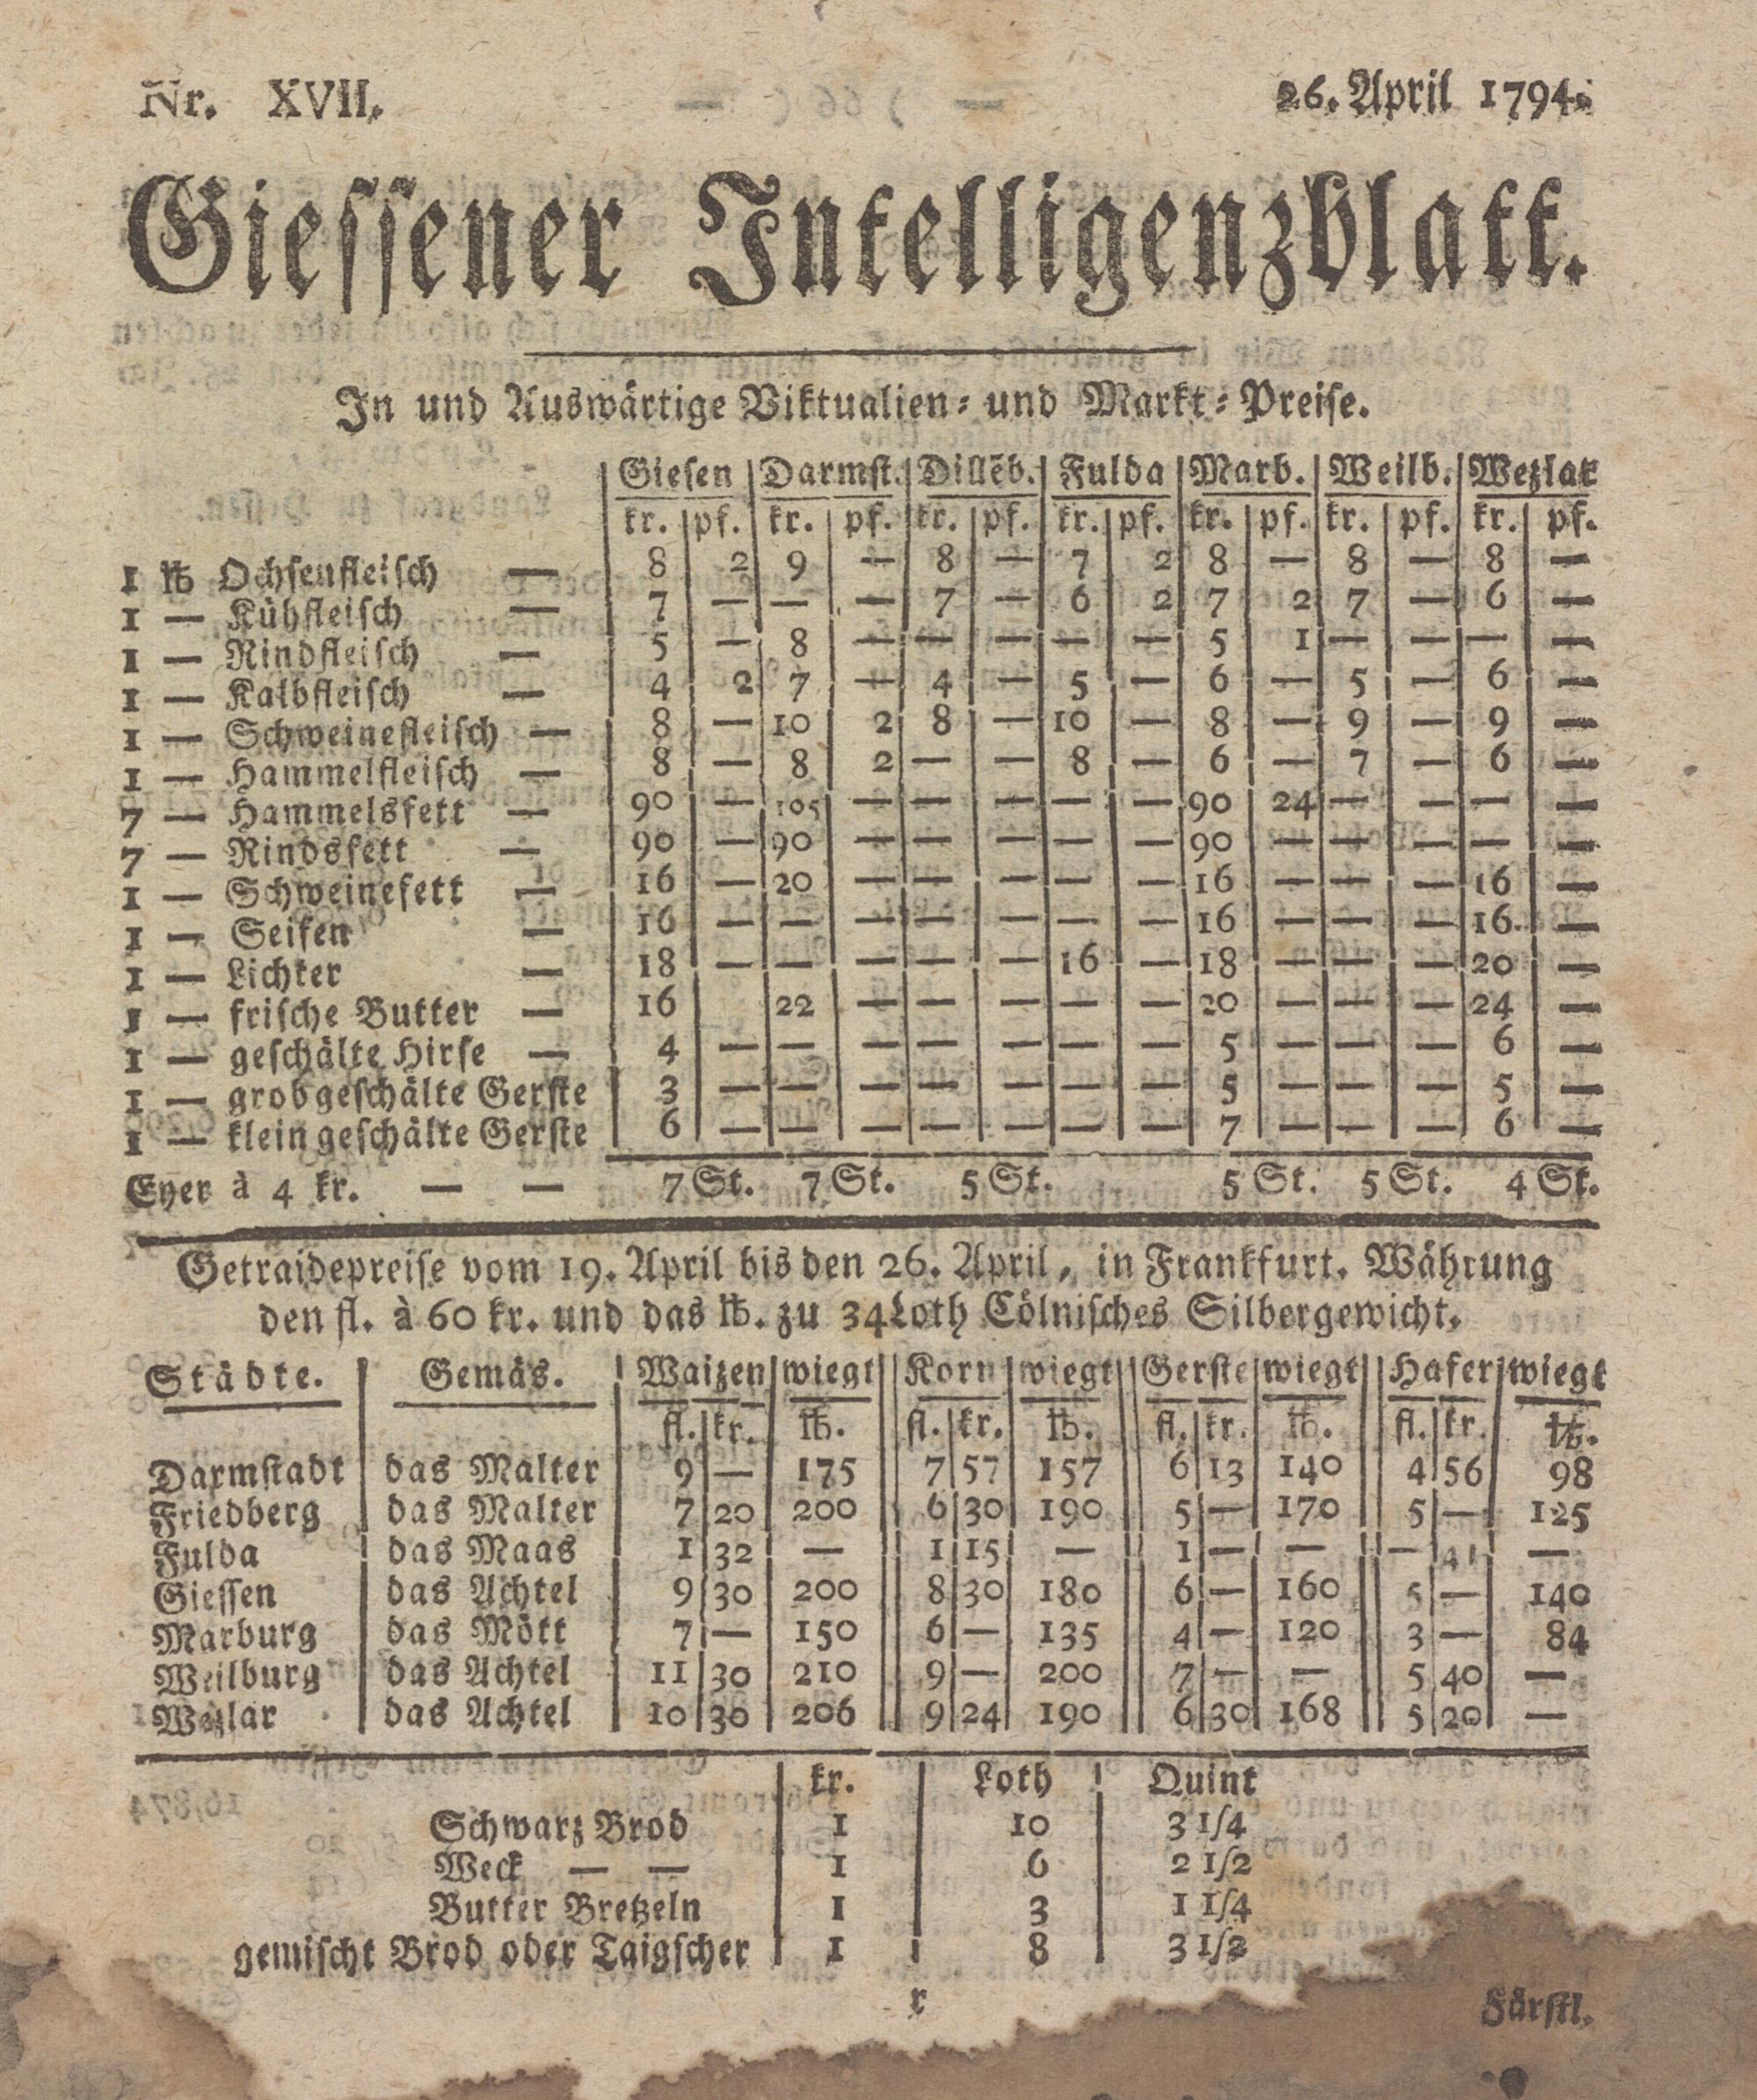 Nr. XVII. 26. April 1794.
Giessener Intelligenzblatt.
In und Auswärtige Viktualien- und Markt-Preise.
Giesen | Darmst. | Dillēb. | Fulda | Marb. | Weilb. | Wezlar
kr. | pf. | kr. | pf. | kr. | pf. | kr. | pf. | kr. | pf. | kr. | pf. | kr. | pf.
1 ℔ Ochsenfleisch — 8 | 2 | 9 | — | 8 | — | 7 | 2 | 8 | — | 8 | — | 8 | —
1 — Kühfleisch — 7 | — | — | — | 7 | — | 6 | 2 | 7 | 2 | 7 | — | 6 | —
1 — Rindfleisch — 5 | — | 8 | — | — | — | — | — | 5 | 1 | — | — | — | —
1 — Kalbfleisch — 4 | 2 | 7 | — | 4 | — | 5 | — | 6 | — | 5 | — | 6 | —
1 — Schweinefleisch — 8 | — | 10 | 2 | 8 | — | 10 | — | 8 | — | 9 | — | 9 | —
1 — Hammelfleisch — 8 | — | 8 | 2 | — | — | 8 | — | 6 | — | 7 | — | 6 | —
7 — Hammelsfett — 90 | — | 105 | — | — | — | — | — | 90 | 24 | — | — | — | —
7 — Rindsfett — 90 | — | 90 | — | — | — | — | — | 90 | — | — | — | — | —
1 — Schweinefett — 16 | — | 20 | — | — | — | — | — | 16 | — | — | — | 16 | —
1 — Seifen — 16 | — | — | — | — | — | — | — | 16 | — | — | — | 16 | —
1 — Lichter — 18 | — | — | — | — | — | 16 | — | 18 | — | — | — | 20 | —
1 — frische Butter — 16 | | 22 | — | — | — | — | — | 20 | — | — | — | 24 | —
1 — geschälte Hirse — 4 | — | — | — | — | — | — | — | 5 | — | — | — | 6 | —
1 — grob geschälte Gerste 3 | — | — | — | — | — | — | — | 5 | — | — | — | 5 | —
1 — klein geschälte Gerste 6 | — | — | — | — | — | — | — | 7 | — | — | — | 6 | —
Eyer à 4 kr. — — 7 St. 7 St. 5 St. 5 St. 5 St. 4 St.
Getraidepreise vom 19. April bis den 26. April, in Frankfurt. Währung
den fl. à 60 kr. und das ℔. zu 34 Loth Cölnisches Silbergewicht.
Städte. | Gemäs. | Waizen | wiegt | Korn | wiegt | Gerste | wiegt | Hafer | wiegt
fl. | kr. | ℔. | fl. | kr. | ℔. | fl. | kr. | ℔. | fl. | kr. | ℔.
Darmstadt | das Malter | 9 | — | 175 | 7 | 57 | 157 | 6 | 13 | 140 | 4 | 56 | 98
Friedberg | das Malter | 7 | 20 | 200 | 6 | 30 | 190 | 5 | — | 170 | 5 | — | 125
Fulda | das Maas | 1 | 32 | — | 1 | 15 | — | 1 | — | — | — | 41 | —
Giessen | das Achtel | 9 | 30 | 200 | 8 | 30 | 180 | 6 | — | 160 | 5 | — | 140
Marburg | das Mött | 7 | — | 150 | 6 | — | 135 | 4 | — | 120 | 3 | — | 84
Weilburg | das Achtel | 11 | 30 | 210 | 9 | — | 200 | 7 | — | — | 5 | 40 | —
Wezlar | das Achtel | 10 | 30 | 206 | 9 | 24 | 190 | 6 | 30 | 168 | 5 | 20 | —
kr. | Loth | Quint
Schwarz Brod | 1 | 10 | 3 1/4
Weck — — | 1 | 6 | 2 1/2
Butter Bretzeln | 1 | 3 | 1 1/4
gemischt Brod oder Taigscher | 1 | 8 | 3 1/2
r Fürstl.